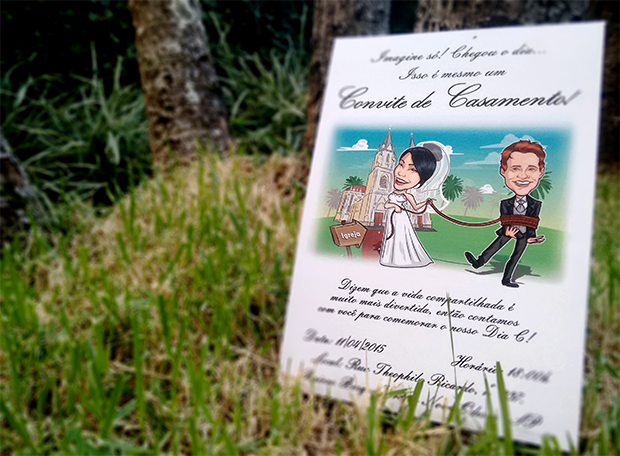 Imagine só! Chegou o dia...
Isso é mesmo um
Convite de Casamento!
Igreja
Dizem que a vida compartilhada é
muito mais divertida, então contamos
com você para comemorar o nosso Dia C!
Data: 11/04/2015
Horário: 18:00h
Local: Rua Theophilo Ricardo, n°